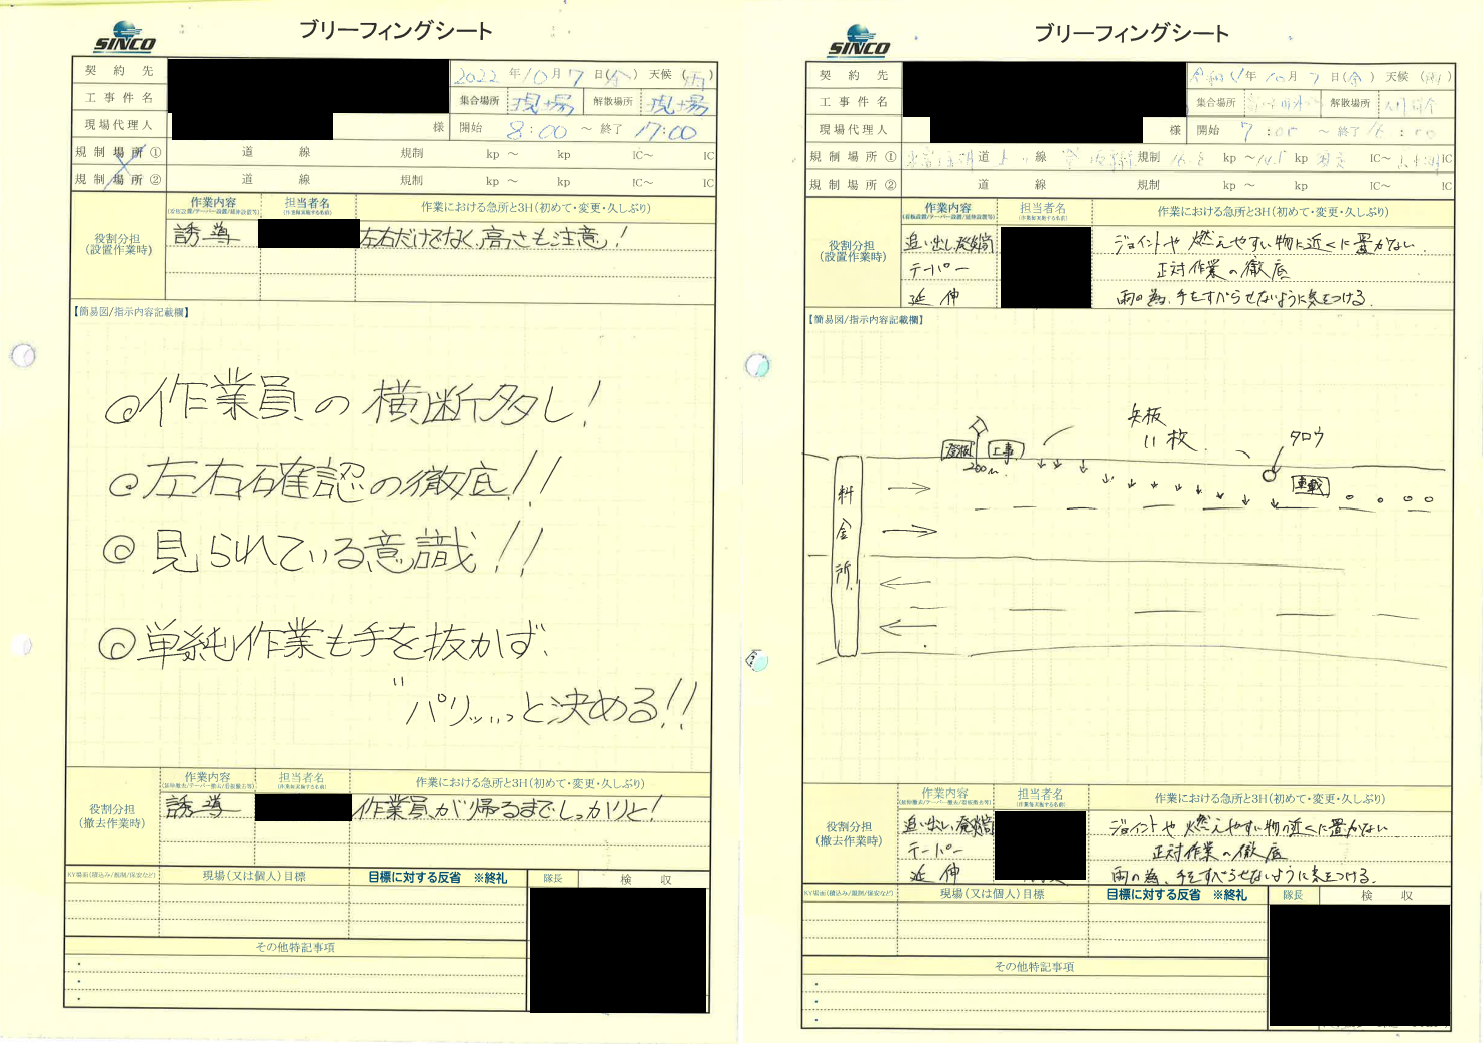 SINCO
ブリーフィングシート
契約先
2022年10月7日(金) 天候(雨)
工事件名
集合場所 現場 解散場所 現場
現場代理人 様 開始 8:00 ～ 終了 17:00
規制場所① 道 線 規制 kp ～ kp IC～ IC
規制場所② 道 線 規制 kp ～ kp IC～ IC
役割分担
(設置作業時)
作業内容 担当者名 作業における急所と3H(初めて・変更・久しぶり)
誘導 左右だけでなく、高さも注意!
【簡易図/指示内容記載欄】
◎作業員の横断多し!
◎左右確認の徹底!!
◎見られている意識!!
◎単純作業も手を抜かず、
"パリッ"っと決める!!
役割分担
(撤去作業時)
作業内容 担当者名 作業における急所と3H(初めて・変更・久しぶり)
誘導 作業員が帰るまでしっかりと!
KY場面(積込み/規制/保安など) 現場(又は個人)目標 目標に対する反省 ※終礼 隊長 検収
その他特記事項
SINCO
ブリーフィングシート
契約先
年10月7日(金) 天候(雨)
工事件名
集合場所 解散場所
現場代理人 様 開始 7:00 ～ 終了 16:00
規制場所① 道 線 規制 kp ～ kp IC～ IC
規制場所② 道 線 規制 kp ～ kp IC～ IC
役割分担
(設置作業時)
作業内容 担当者名 作業における急所と3H(初めて・変更・久しぶり)
追い出し、発炎筒 ジョイントや燃えやすい物に近くに置かない
テーパー 正対作業の徹底
延伸 雨の為、手をすべらせないように気をつける.
【簡易図/指示内容記載欄】
矢板
11枚
タロウ
工事
200m
車載
料金所
役割分担
(撤去作業時)
作業内容 担当者名 作業における急所と3H(初めて・変更・久しぶり)
追い出し、発炎筒 ジョイントや燃えやすい物の近くに置かない
テーパー 正対作業の徹底
延伸 雨の為、手をすべらせないように気をつける.
KY場面(積込み/規制/保安など) 現場(又は個人)目標 目標に対する反省 ※終礼 隊長 検収
その他特記事項